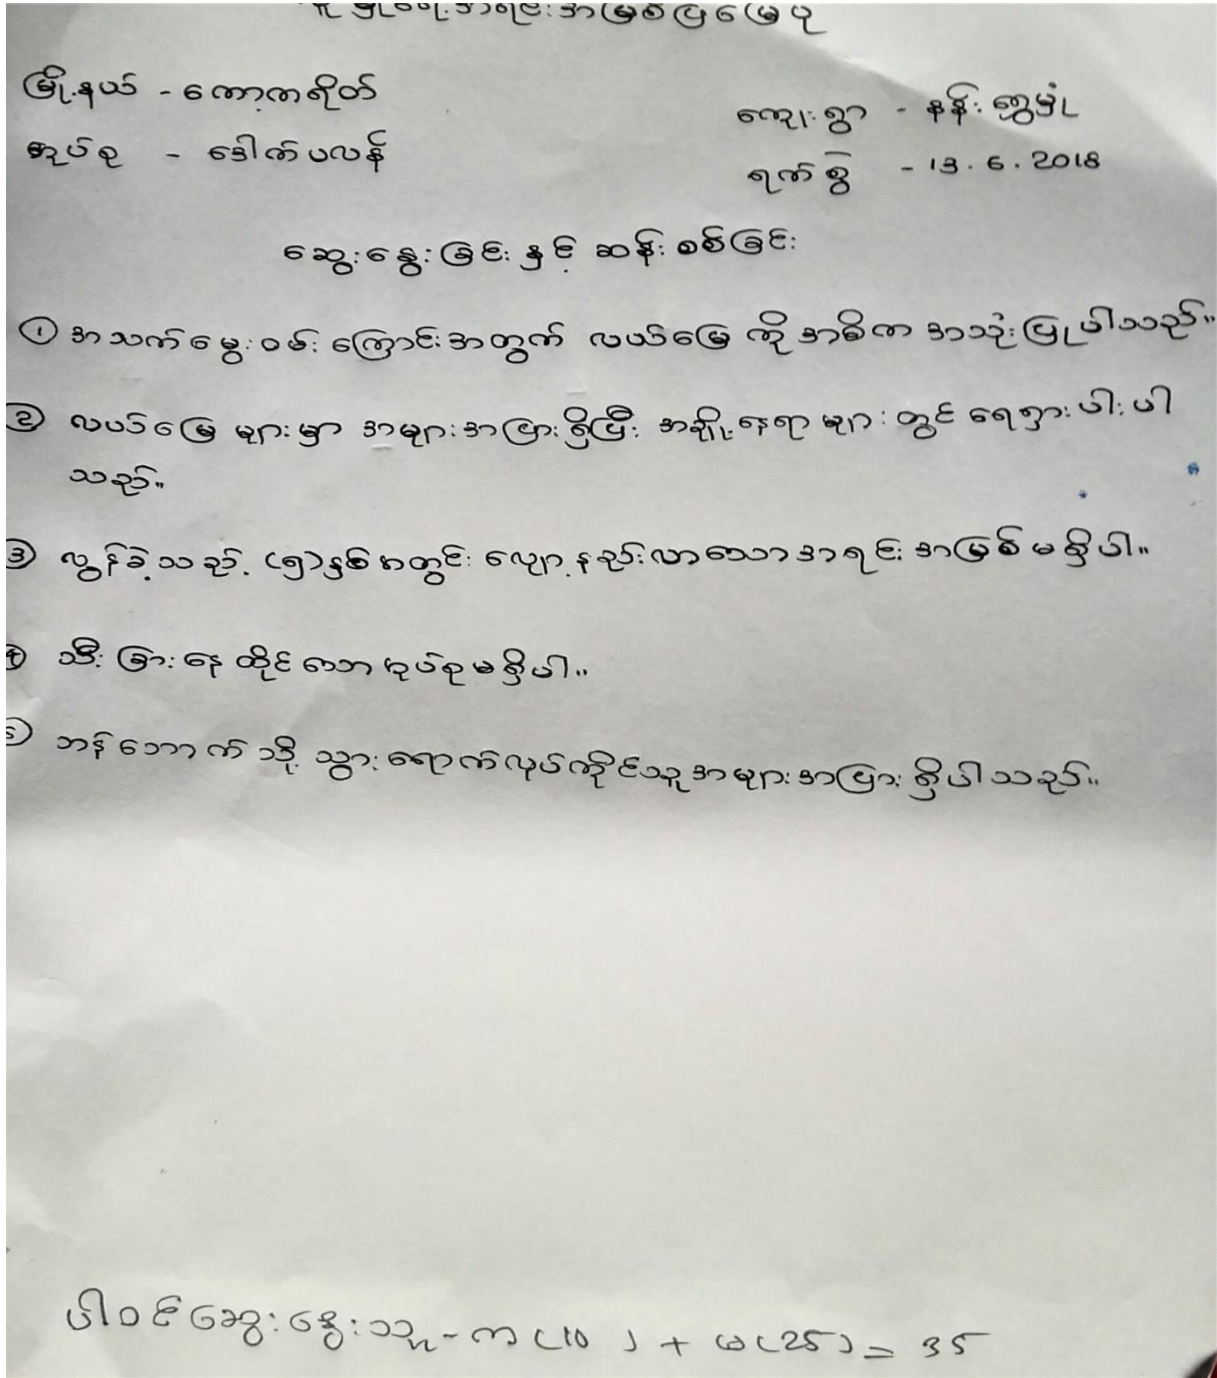 လူမှုရေးအရင်းအမြစ်ပြမြေပုံ
မြို့နယ် - ကော့ကရိတ်
ကျေးရွာ - နန်းရွှေမှုံ
အုပ်စု - ဒေါက်ပလန်
ရက်စွဲ - 13.6.2018
ဆွေးနွေးခြင်းနှင့် ဆန်းစစ်ခြင်း
① အသက်မွေးဝမ်းကြောင်းအတွက် လယ်မြေကိုအဓိကအသုံးပြုပါသည်။
② လယ်မြေများမှာ အများအပြားရှိပြီး အချို့နေရာများတွင် ရေရှားပါးပါ
သည်။
③ လွန်ခဲ့သည့် (၅)နှစ်အတွင်း လျော့နည်းလာသောအရင်းအမြစ်မရှိပါ။
④ သီးခြားနေထိုင်သောအုပ်စုမရှိပါ။
⑤ ဘန်ကောက်သို့ သွားရောက်လုပ်ကိုင်သူအများအပြားရှိပါသည်။
ပါဝင်ဆွေးနွေးသူ - က(10) + မ(25) = 35